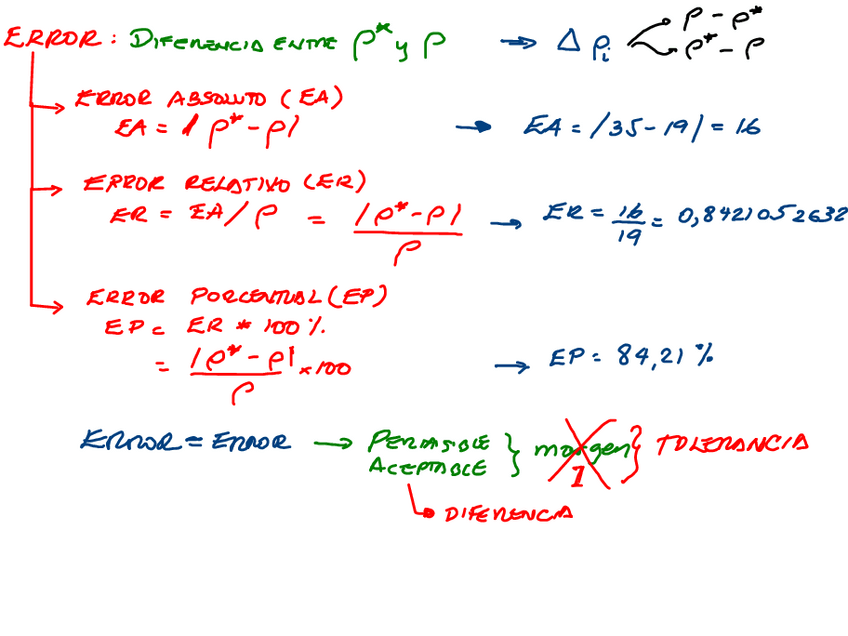 ERROR: DIFERENCIA ENTRE P* y P → Δ Pi P - P*
P* - P
ERROR ABSOLUTO (EA)
EA = |P* - P| → EA = |35 - 19| = 16
ERROR RELATIVO (ER)
ER = EA/P = |P* - P| / P → ER = 16/19 = 0,8421052632
ERROR PORCENTUAL (EP)
EP = ER * 100%.
= |P* - P| / P × 100 → EP = 84,21 %
ERROR = ERROR → PERMISIBLE } margen } TOLERANCIA
ACEPTABLE 1
DIFERENCIA